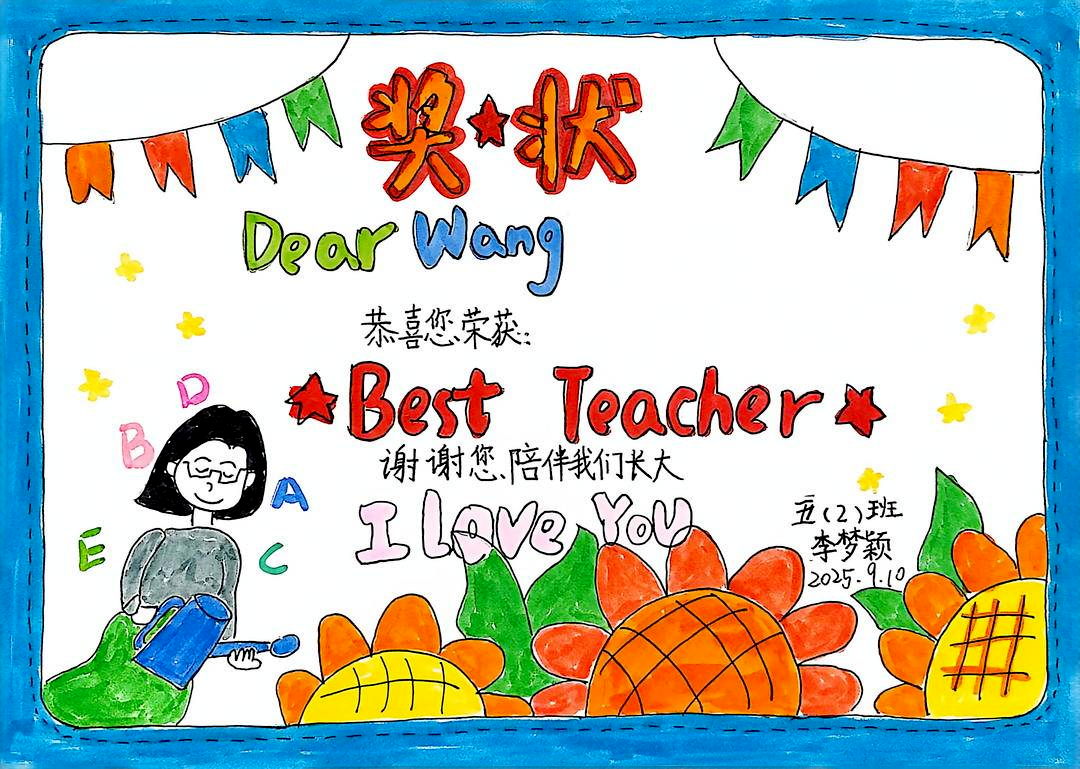 奖★状
Dear Wang
恭喜您荣获:
★Best Teacher★
谢谢您、陪伴我们长大
I Love You
五(2)班
李梦颖
2025.9.10
D
B
A
E
C